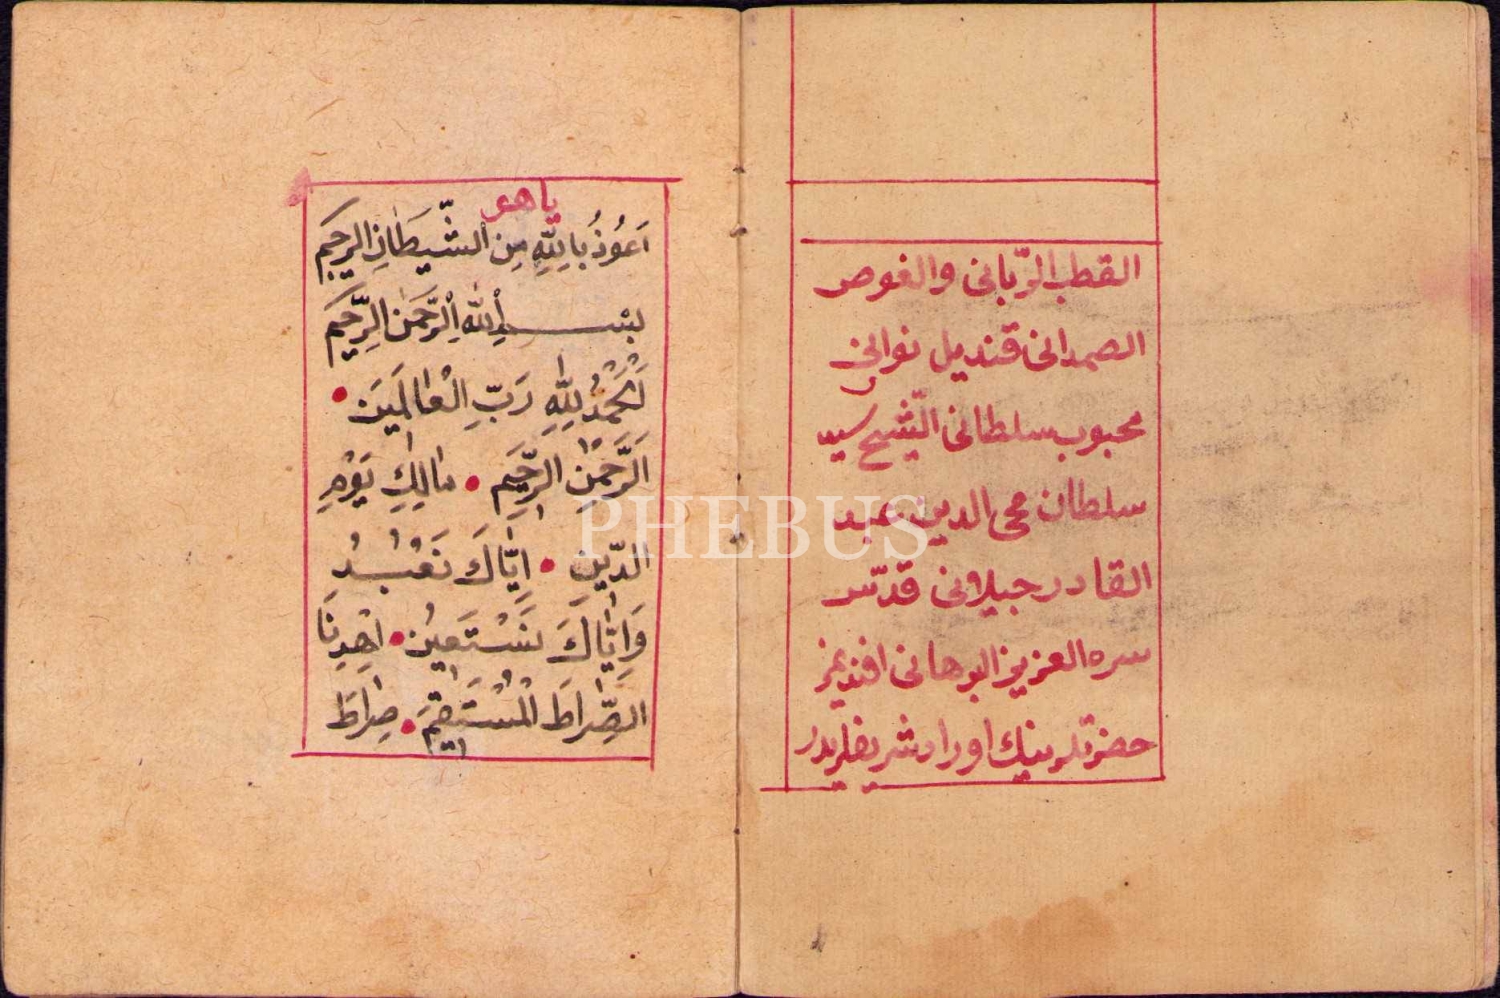 القطب الرّبانى والغوص
الصمدانى قنديل نوانى
محبوب سلطانى الشّيخ سيد
سلطان محى الدين عبد
القادر جيلانى قدّس
سره العزيز البرهانى افنديمز
حضرتلرينك اوراد شريفلريدر
يا هو
اَعُوذُ بِاللّٰهِ مِنَ الشَّيطَانِ الرَّجِيم
بسم اللّٰهِ الرَّحمٰنِ الرَّحِيم
اَلْحَمْدُ لِلّٰهِ رَبِّ الْعَالَمِينَ
اَلرَّحْمٰنِ الرَّحِيمِ مَالِكِ يَوْمِ
الدِّينِ اِيَّاكَ نَعْبُدُ
وَاِيَّاكَ نَسْتَعِينُ اِهْدِنَا
الصِّرَاطَ الْمُسْتَقِيمَ صِرَاطَ
PHEBUS